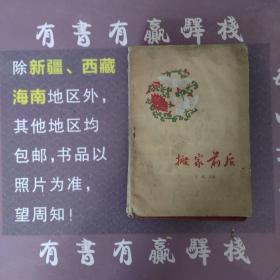 有書有贏驛棧
除新疆、西藏
海南地区外，
其他地区均
包邮，书品以
照片为准，
望周知！
搬家前后
有書有贏驛棧